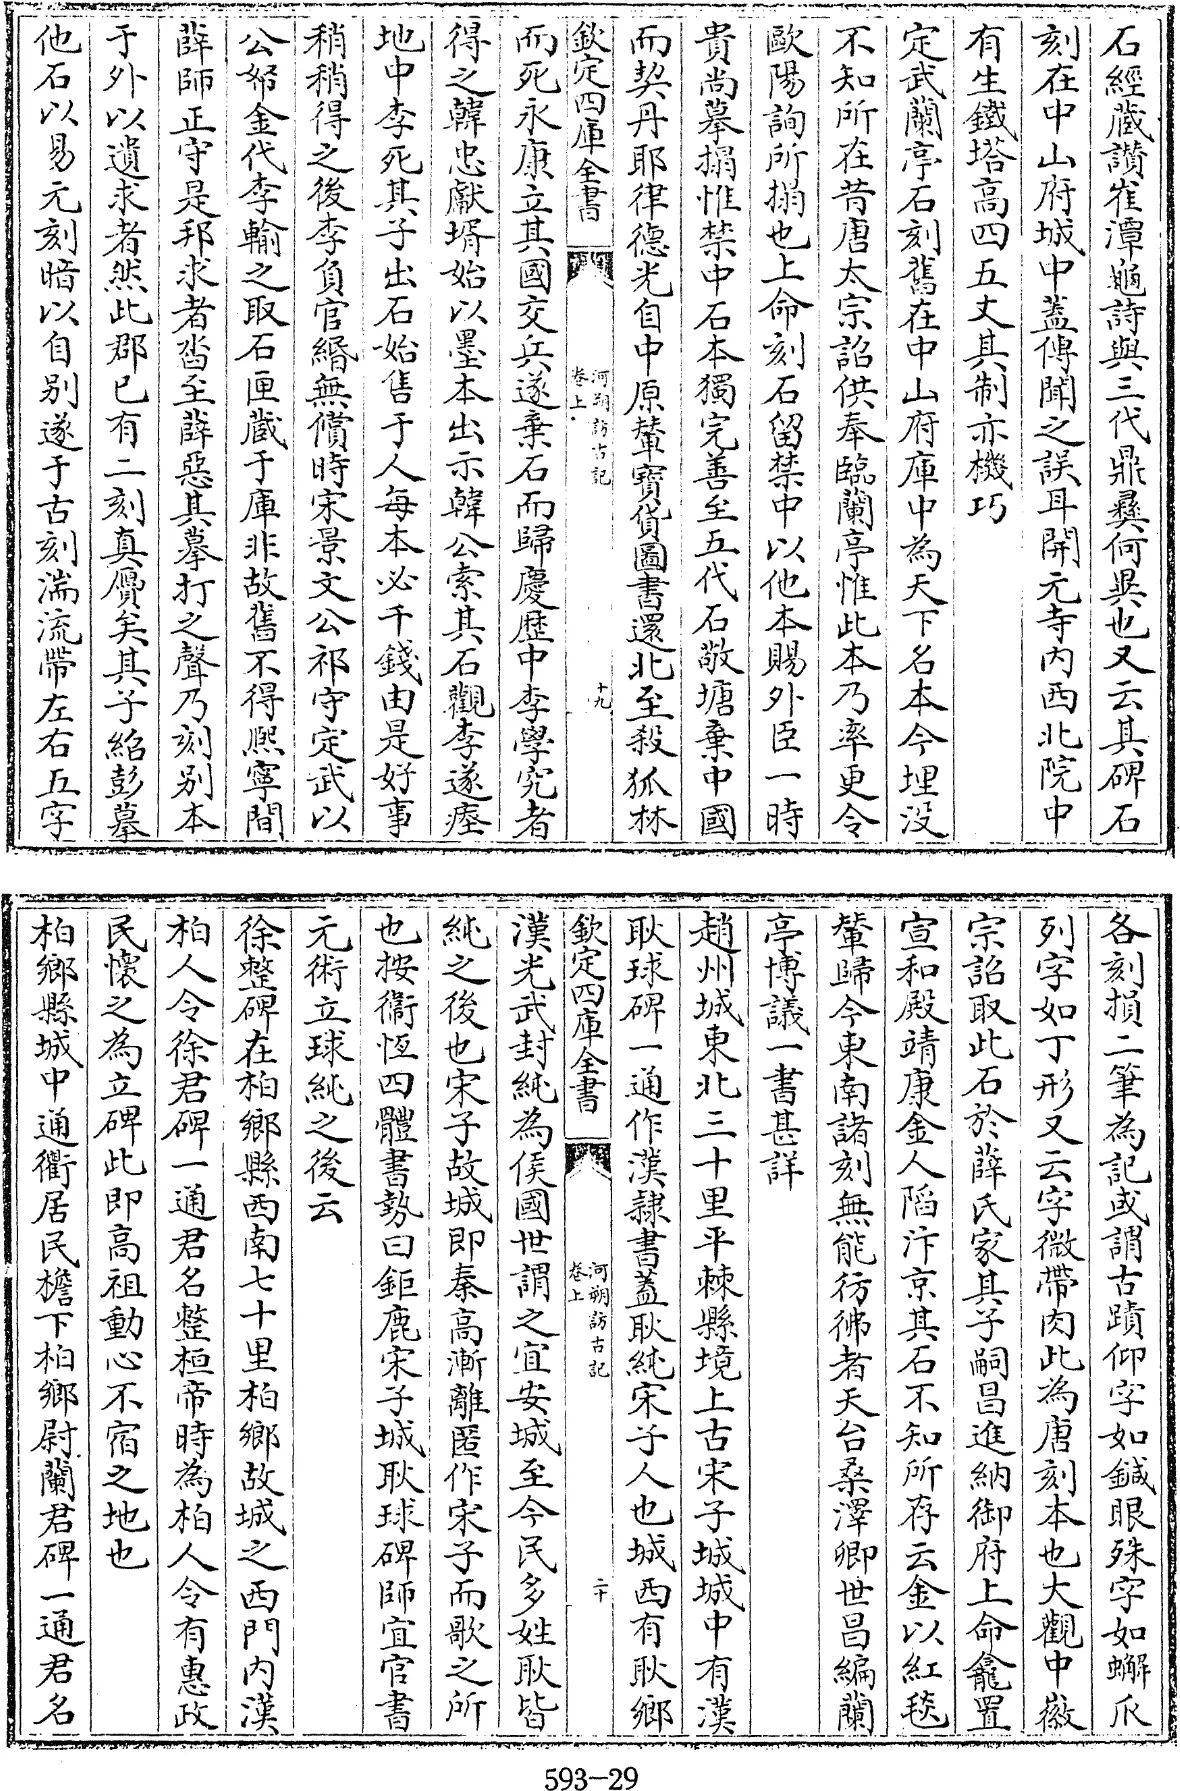 石經藏讃崔潭龜詩與三代鼎彝何異也又云其碑石
刻在中山府城中蓋傳聞之誤耳開元寺内西北院中
有生鐵塔高四五丈其制亦機巧
定武蘭亭石刻舊在中山府庫中為天下名本今埋没
不知所在昔唐太宗詔供奉臨蘭亭惟此本乃率更令
歐陽詢所搨也上命刻石留禁中以他本賜外臣一時
貴尚摹搨惟禁中石本獨完善至五代石敬塘棄中國
而契丹耶律德光自中原輦寳貨圖書還北至殺狐林
欽定四庫全書
河朔訪古記
卷上
十九
而死永康立其國交兵遂棄石而歸慶歴中李學究者
得之韓忠獻壻始以墨本出示韓公索其石觀李遂瘞
地中李死其子出石始售于人每本必千錢由是好事
稍稍得之後李負官緡無償時宋景文公祁守定武以
公帑金代李輸之取石匣藏于庫非故舊不得熙寧間
薛師正守是邦求者沓至薛惡其摹打之聲乃刻别本
于外以遺求者然此郡已有二刻真贋矣其子紹彭摹
他石以易元刻暗以自别遂于古刻湍流帶左右五字
各刻損二筆為記或謂古蹟仰字如鍼眼殊字如蠏爪
列字如丁形又云字微帶肉此為唐刻本也大觀中徽
宗詔取此石於薛氏家其子嗣昌進納御府上命龕置
宣和殿靖康金人䧟汴京其石不知所存云金以紅毯
輦歸今東南諸刻無能彷彿者天台桑澤卿世昌編蘭
亭博議一書甚詳
趙州城東北三十里平棘縣境上古宋子城城中有漢
耿球碑一通作漢隸書蓋耿純宋子人也城西有耿鄉
欽定四庫全書
河朔訪古記
卷上
二十
漢光武封純為侯國世謂之宜安城至今民多姓耿皆
純之後也宋子故城即秦高漸離匿作宋子而歌之所
也按衞恆四體書勢曰鉅鹿宋子城耿球碑師宜官書
元術立球純之後云
徐整碑在柏鄉縣西南七十里柏鄉故城之西門内漢
柏人令徐君碑一通君名整桓帝時為柏人令有惠政
民懷之為立碑此即高祖動心不宿之地也
柏鄉縣城中通衢居民檐下柏鄉尉蘭君碑一通君名
593-29